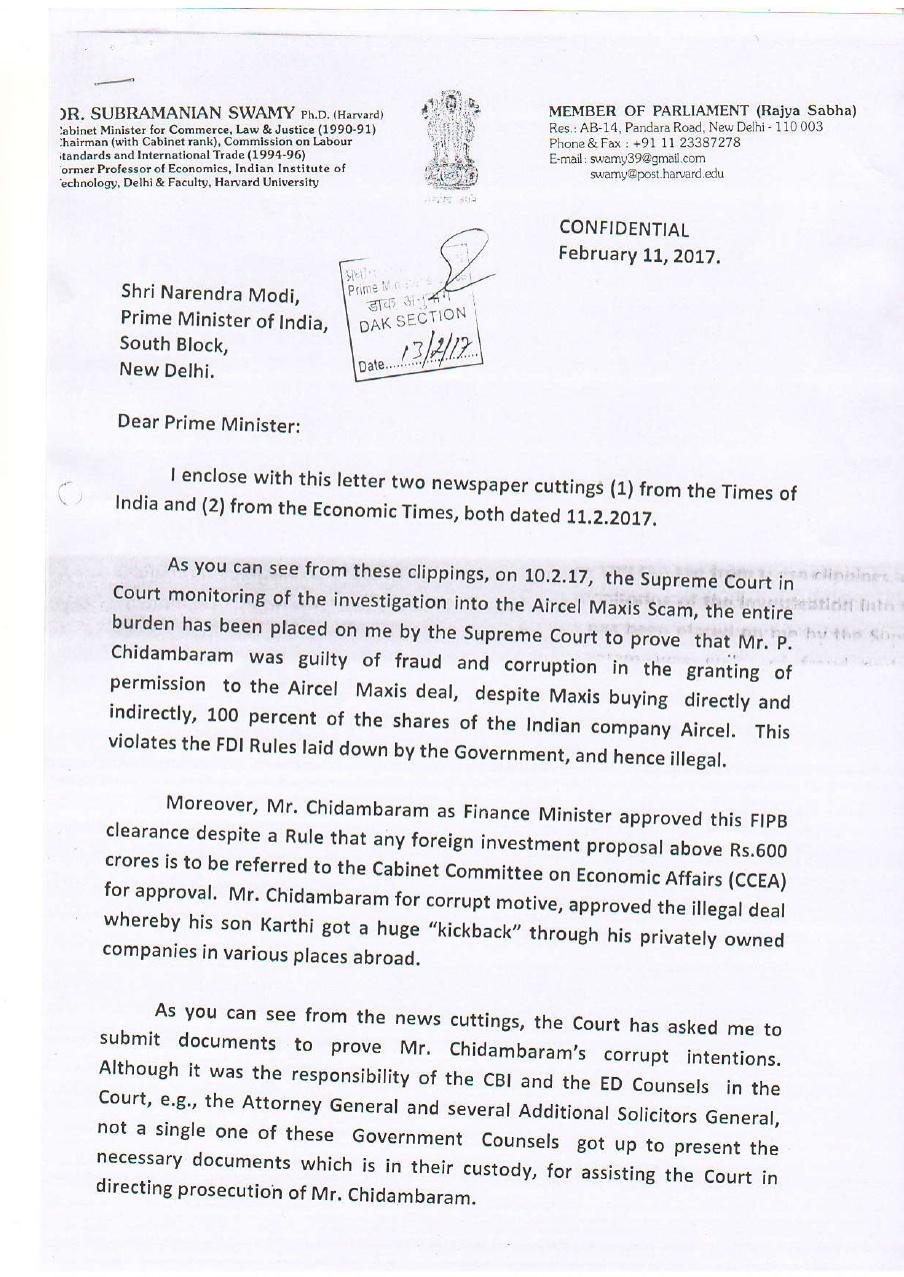 DR. SUBRAMANIAN SWAMY Ph.D. (Harvard)
Cabinet Minister for Commerce, Law & Justice (1990-91)
Chairman (with Cabinet rank), Commission on Labour
Standards and International Trade (1994-96)
Former Professor of Economics, Indian Institute of
Technology, Delhi & Faculty, Harvard University
MEMBER OF PARLIAMENT (Rajya Sabha)
Res.: AB-14, Pandara Road, New Delhi - 110 003
Phone & Fax : +91 11 23387278
E-mail : swamy39@gmail.com
swamy@post.harvard.edu
CONFIDENTIAL
February 11, 2017.
Prime
डाक
DAK SECTION
Date...13/2/17...
Shri Narendra Modi,
Prime Minister of India,
South Block,
New Delhi.
Dear Prime Minister:
I enclose with this letter two newspaper cuttings (1) from the Times of
India and (2) from the Economic Times, both dated 11.2.2017.
As you can see from these clippings, on 10.2.17, the Supreme Court in
Court monitoring of the investigation into the Aircel Maxis Scam, the entire
burden has been placed on me by the Supreme Court to prove that Mr. P.
Chidambaram was guilty of fraud and corruption in the granting of
permission to the Aircel Maxis deal, despite Maxis buying directly and
indirectly, 100 percent of the shares of the Indian company Aircel. This
violates the FDI Rules laid down by the Government, and hence illegal.
Moreover, Mr. Chidambaram as Finance Minister approved this FIPB
clearance despite a Rule that any foreign investment proposal above Rs.600
crores is to be referred to the Cabinet Committee on Economic Affairs (CCEA)
for approval. Mr. Chidambaram for corrupt motive, approved the illegal deal
whereby his son Karthi got a huge “kickback” through his privately owned
companies in various places abroad.
As you can see from the news cuttings, the Court has asked me to
submit documents to prove Mr. Chidambaram's corrupt intentions.
Although it was the responsibility of the CBI and the ED Counsels in the
Court, e.g., the Attorney General and several Additional Solicitors General,
not a single one of these Government Counsels got up to present the
necessary documents which is in their custody, for assisting the Court in
directing prosecution of Mr. Chidambaram.